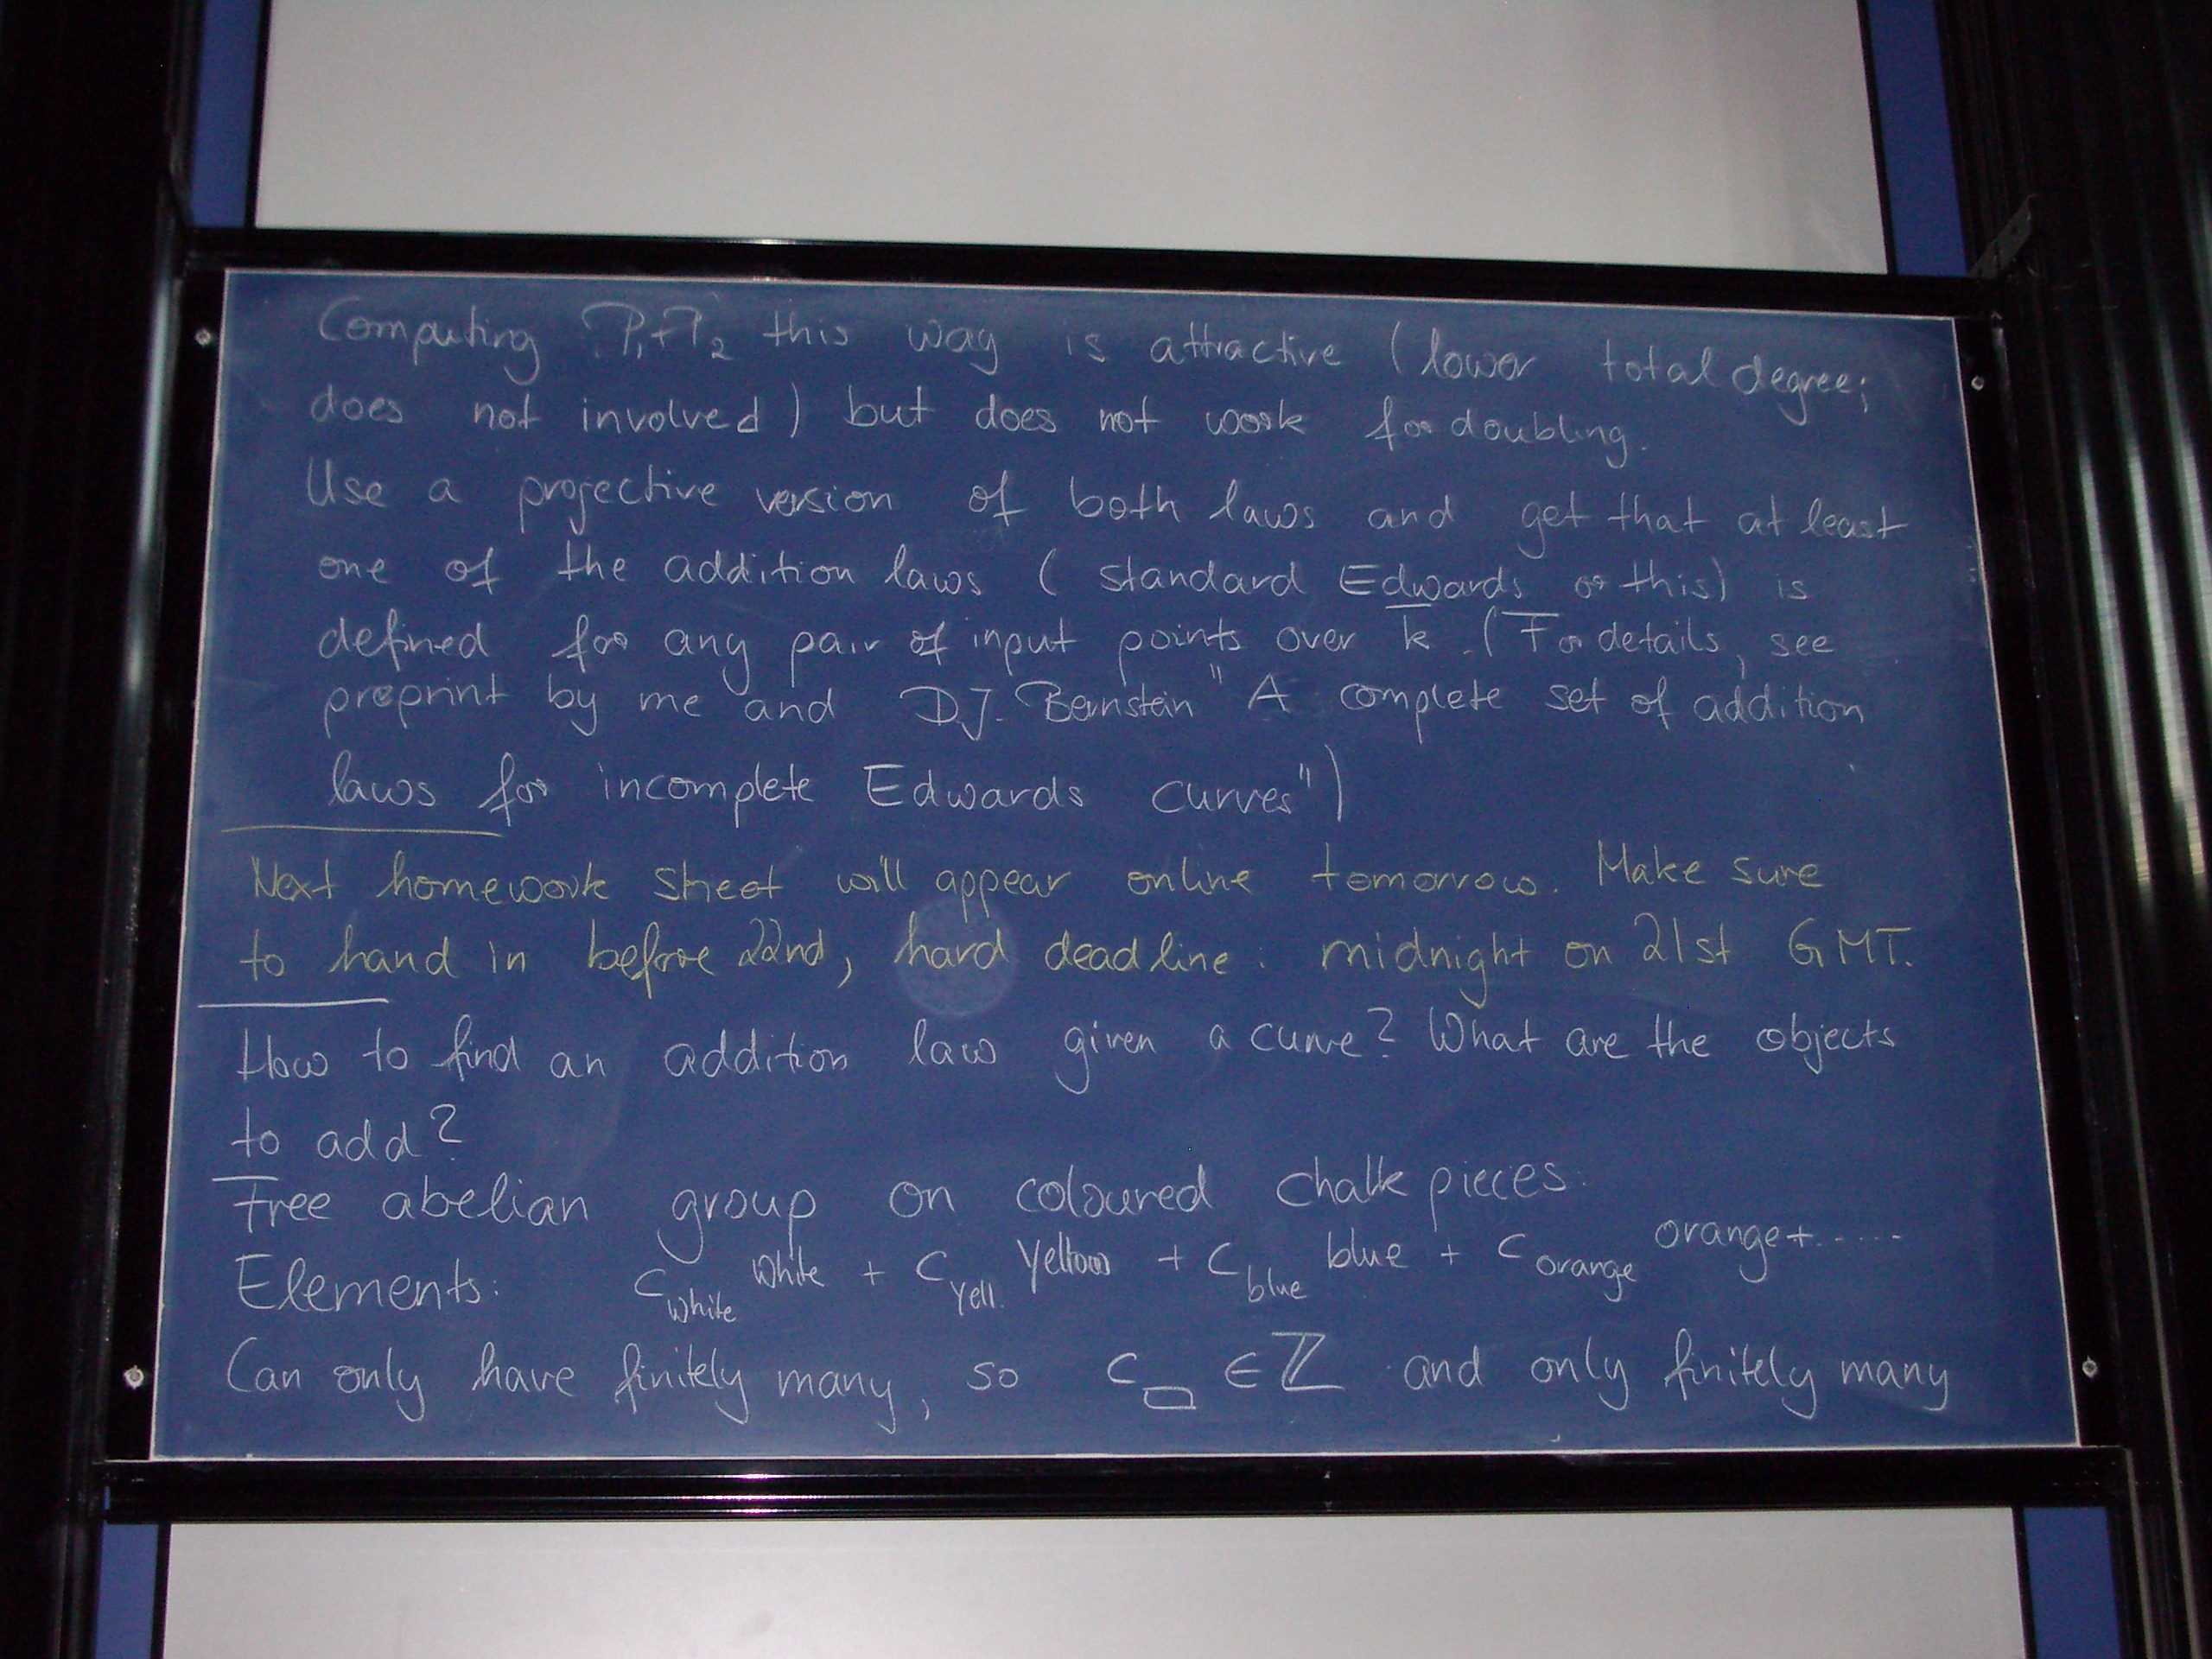 Computing P₁+P₂ this way is attractive (lower total degree;
does not involve d) but does not work for doubling.
Use a projective version of both laws and get that at least
one of the addition laws (standard Edwards or this) is
defined for any pair of input points over k̅. (For details, see
preprint by me and D.J. Bernstein "A complete set of addition
laws for incomplete Edwards curves")
Next homework sheet will appear online tomorrow. Make sure
to hand in before 22nd, hard deadline: midnight on 21st GMT.
How to find an addition law given a curve? What are the objects
to add?
Free abelian group on coloured chalk pieces:
Elements: c_white white + c_yell. yellow + c_blue blue + c_orange orange+......
Can only have finitely many, so c_▭ ∈ ℤ and only finitely many